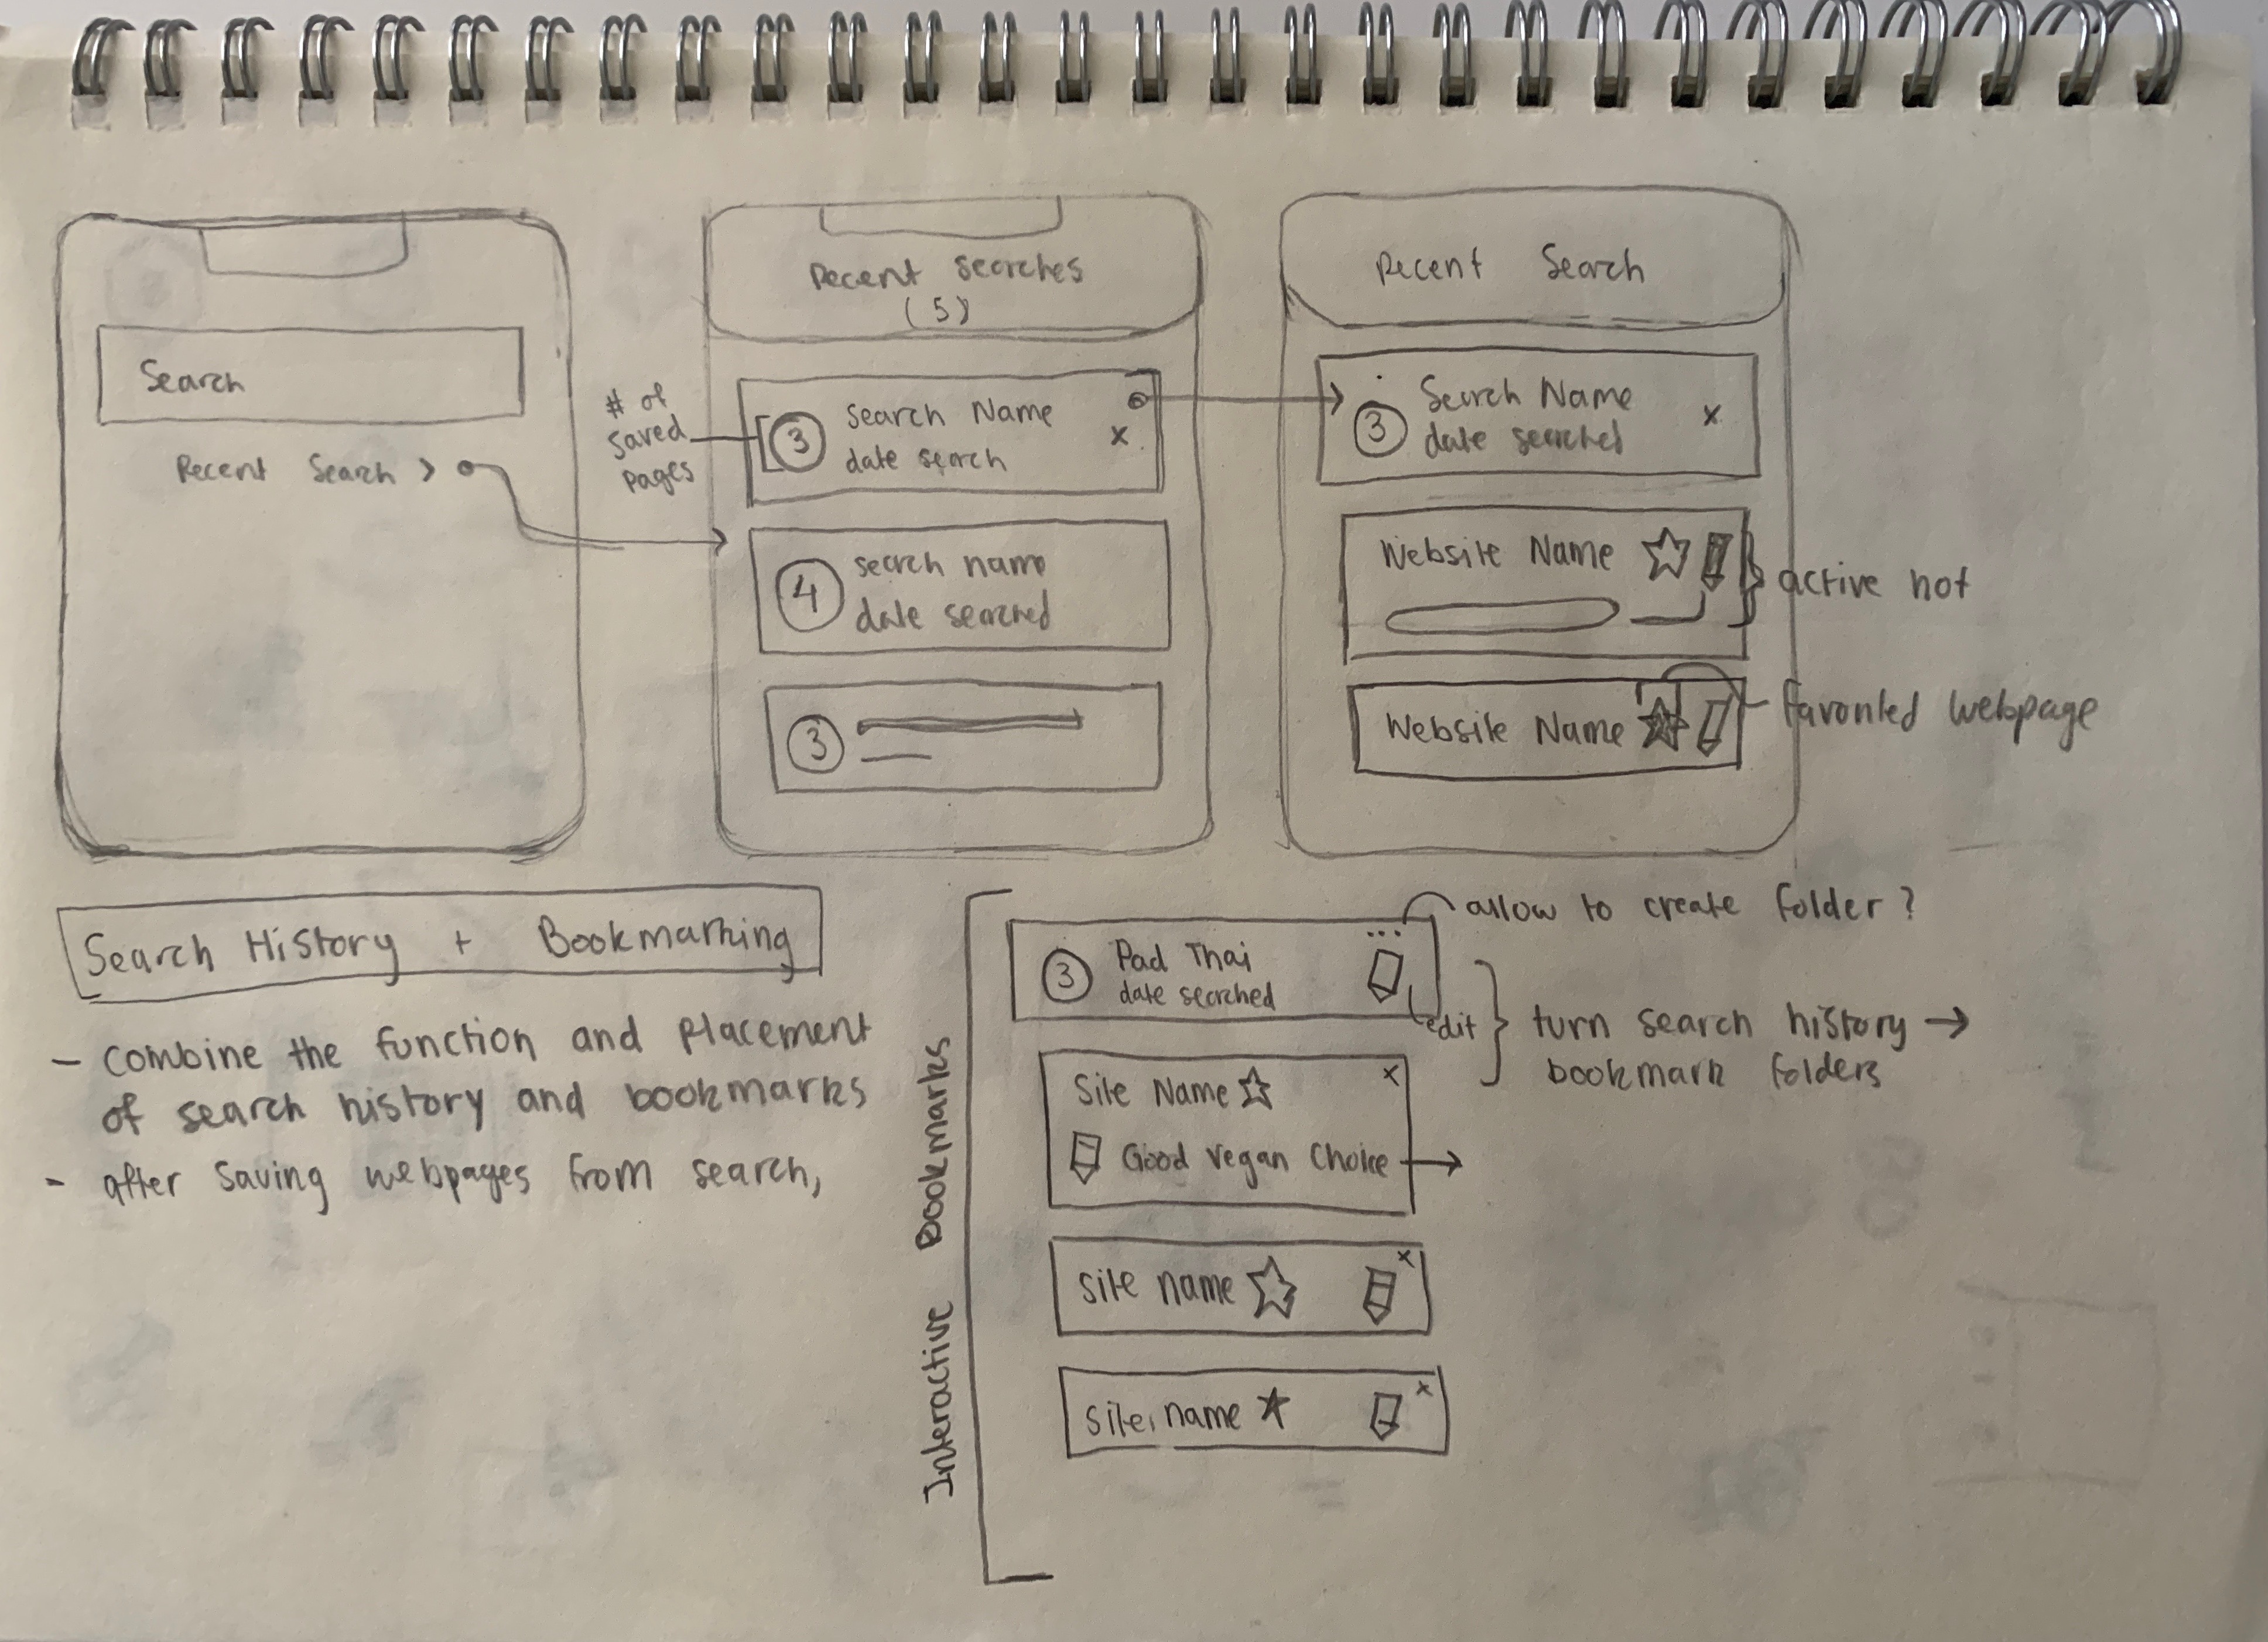 Search
Recent Search >
# of
saved
pages
Recent searches
(5)
3
Search Name
date search
x
4
search name
date searched
3
Recent Search
3
Search Name
date searched
x
Website Name
active not
Website Name
favorited webpage
Search History + Bookmarking
- combine the function and placement
of search history and bookmarks
- after saving webpages from search,
Interactive Bookmarks
allow to create folder?
3
Pad Thai
date searched
...
edit
turn search history →
bookmark folders
Site Name
x
Good vegan Choice
site name
x
site name
x